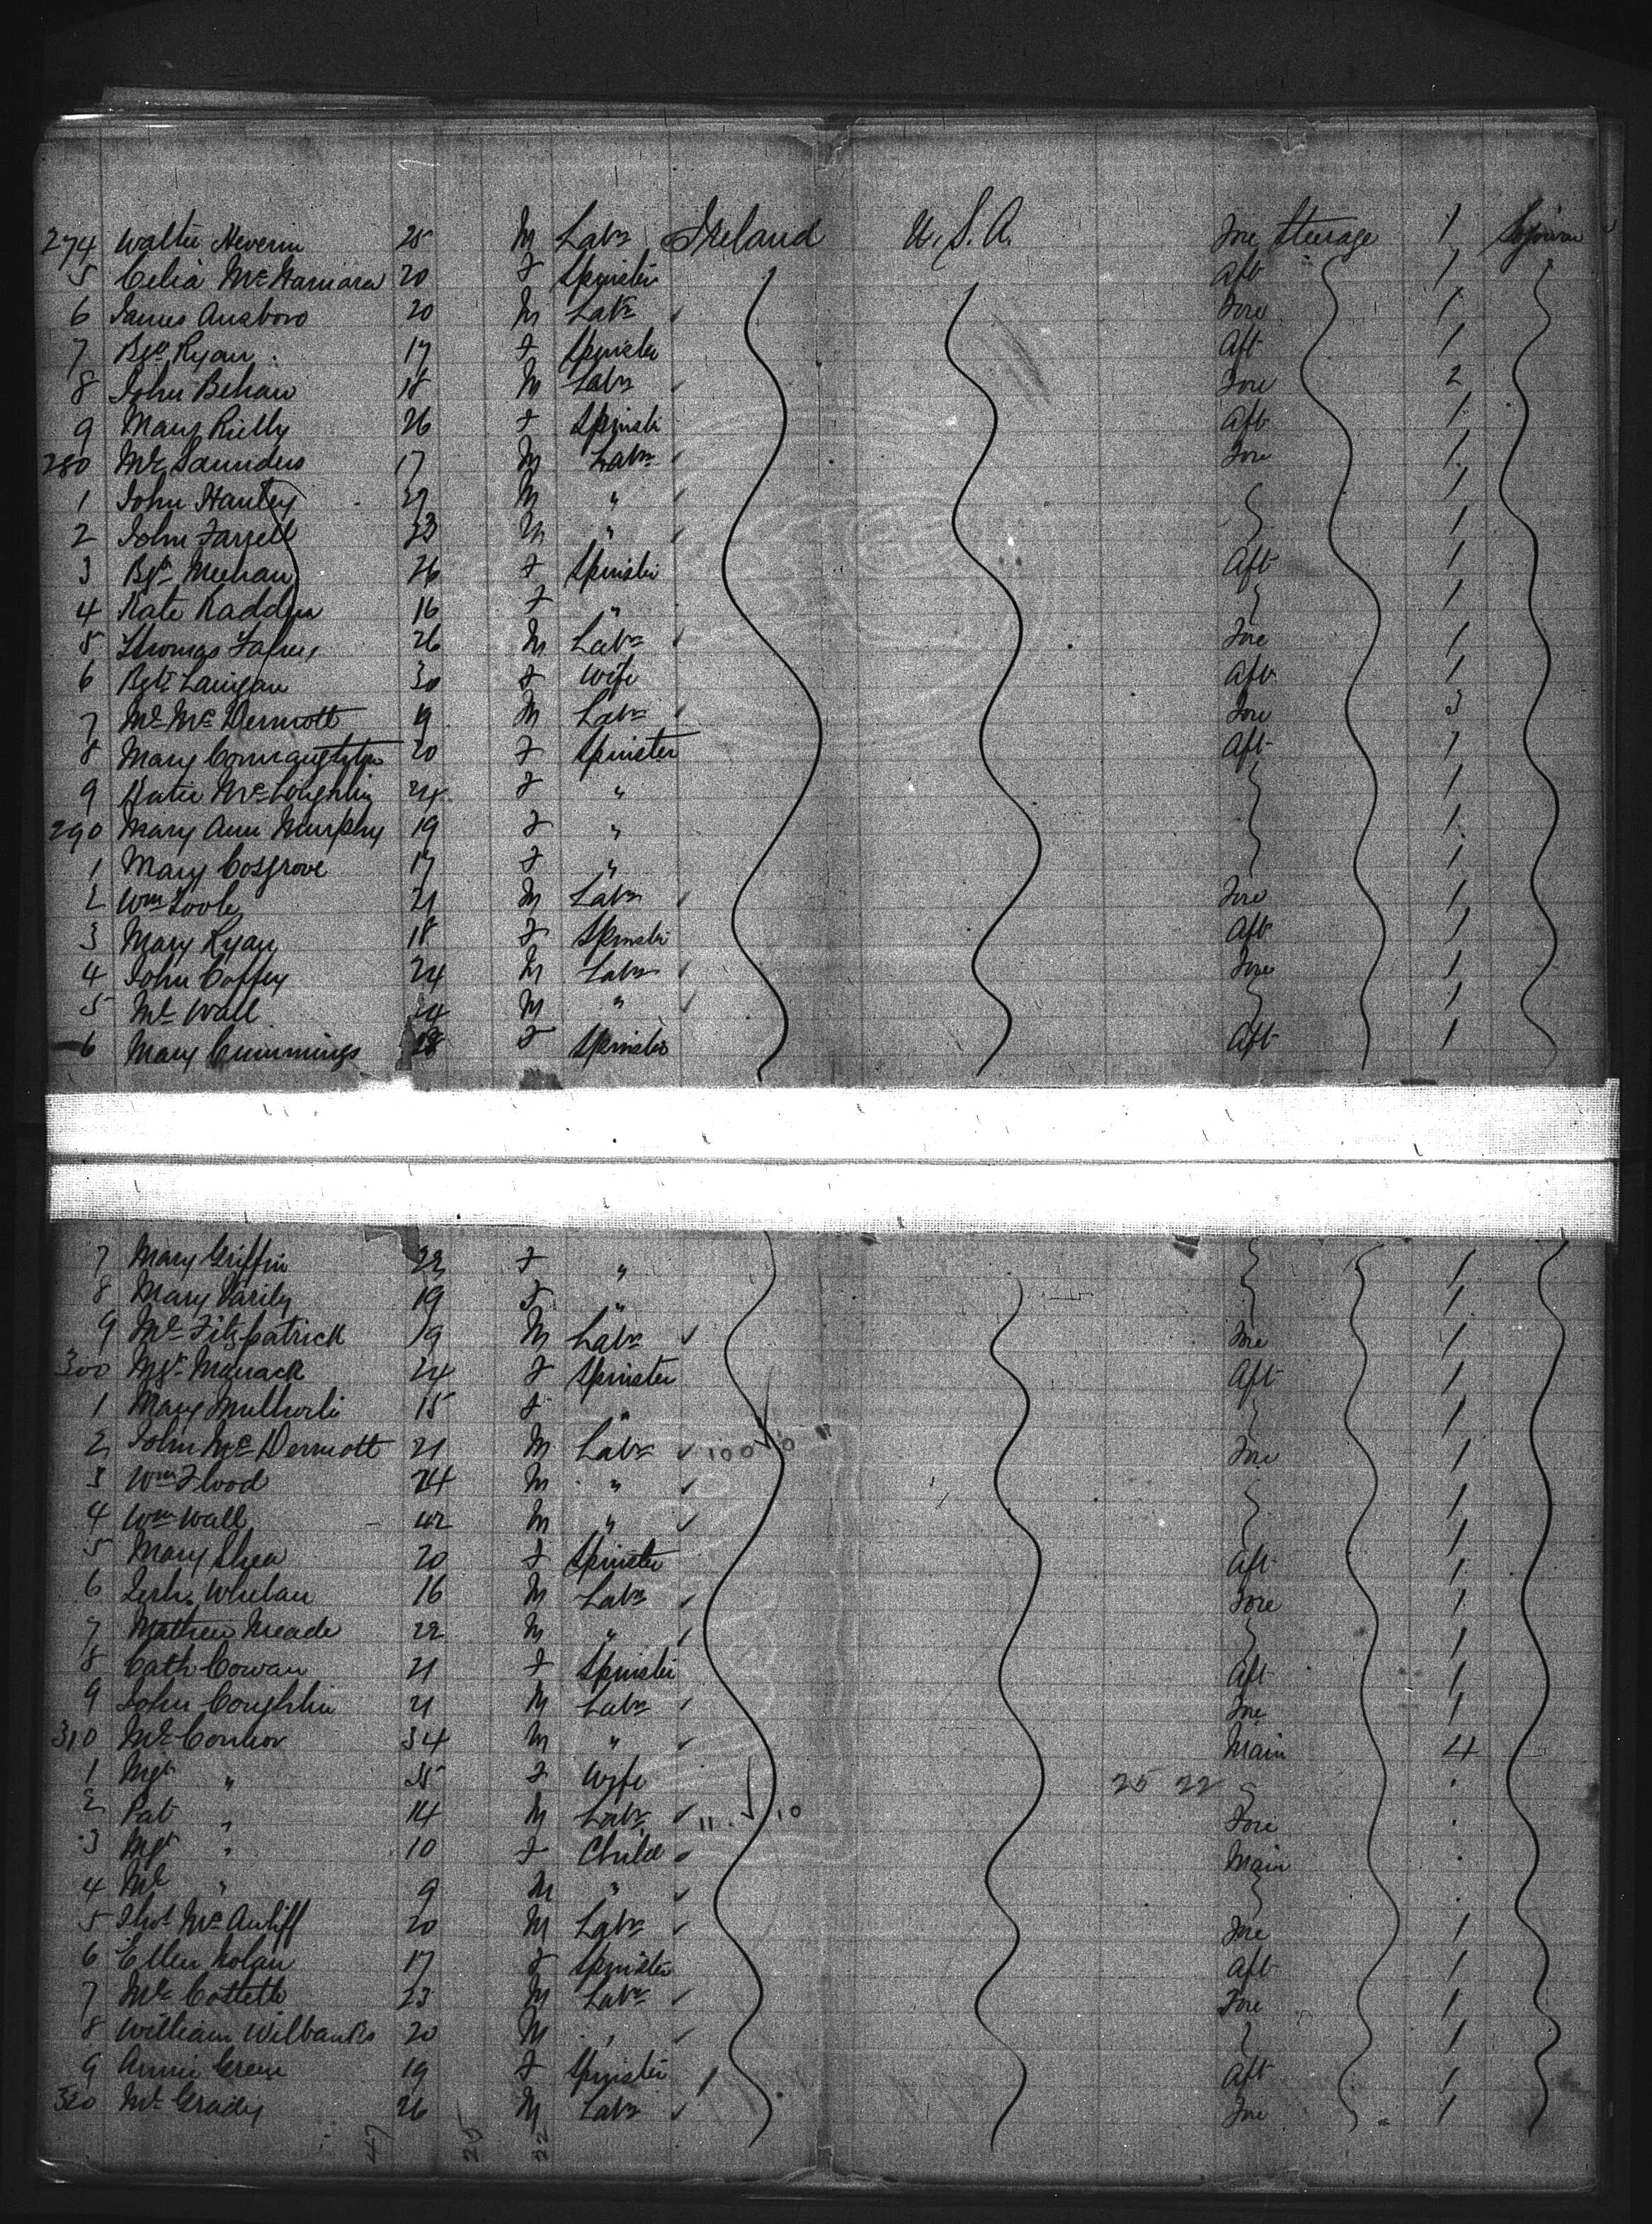 274 Walter Neverin 25 M Labr Ireland U.S.A. Fore Steerage 1 Sojourn
5 Celia McNamara 20 F Spinster Aft " 1
6 James Ansboro 20 M Labr Fore 1
7 Bgt Ryan 17 F Spinster Aft 1
8 John Behan 18 M Labr Fore 2
9 Mary Rielly 26 F Spinster Aft 1
280 Ml Saunders 17 M Labr Fore 1
1 John Hanley 29 M " 1
2 John Farrell 23 M " 1
3 Bgt Meehan 26 F Spinster Aft 1
4 Kate Madden 16 F " 1
5 Thomas Fahey 26 M Labr Fore 1
6 Bgt Lanigan 30 F Wife Aft 1
7 Ml McDermott 19 M Labr Fore 3
8 Mary Connaughton 20 F Spinster Aft 1
9 Katie McLoughlin 24 F " 1
290 Mary Ann Murphy 19 F " 1
1 Mary Cosgrove 17 F " 1
2 Wm Toole 21 M Labr Fore 1
3 Mary Ryan 18 F Spinster Aft 1
4 John Coffey 24 M Labr Fore 1
5 Ml Wall 24 M " 1
6 Mary Cummings 18 F Spinster Aft 1
7 Mary Griffin 22 F " 1
8 Mary Varily 19 F " 1
9 Ml Fitzpatrick 19 M Labr Fore 1
300 Mgt 24 F Spinster Aft 1
1 Mary 15 F " 1
2 John McDermott 21 M Labr Fore 1
3 Wm Flood 24 M " 1
4 Wm Wall 42 M " 1
5 Mary Shea 20 F Spinster Aft 1
6 Whelan 16 M Labr Fore 1
7 Mathew Meade 22 M " 1
8 Cath Cowan 21 F Spinster Aft 1
9 John Coughlin 21 M Labr Fore 1
310 Ml Connor 34 M " Main 4
1 Mgt " 35 F Wife 25 22
2 Pat " 14 M Labr 11 10 Fore
3 Mgt " 10 F Child Main
4 Ml " 9 M "
5 Thos McAuliff 20 M Labr Fore 1
6 Ellen Nolan 17 F Spinster Aft 1
7 Ml Costello 23 M Labr Fore 1
8 William Wilbanks 20 M " 1
9 Annie Crean 19 F Spinster Aft 1
320 Ml Grady 26 M Labr Fore 1
47 25 22